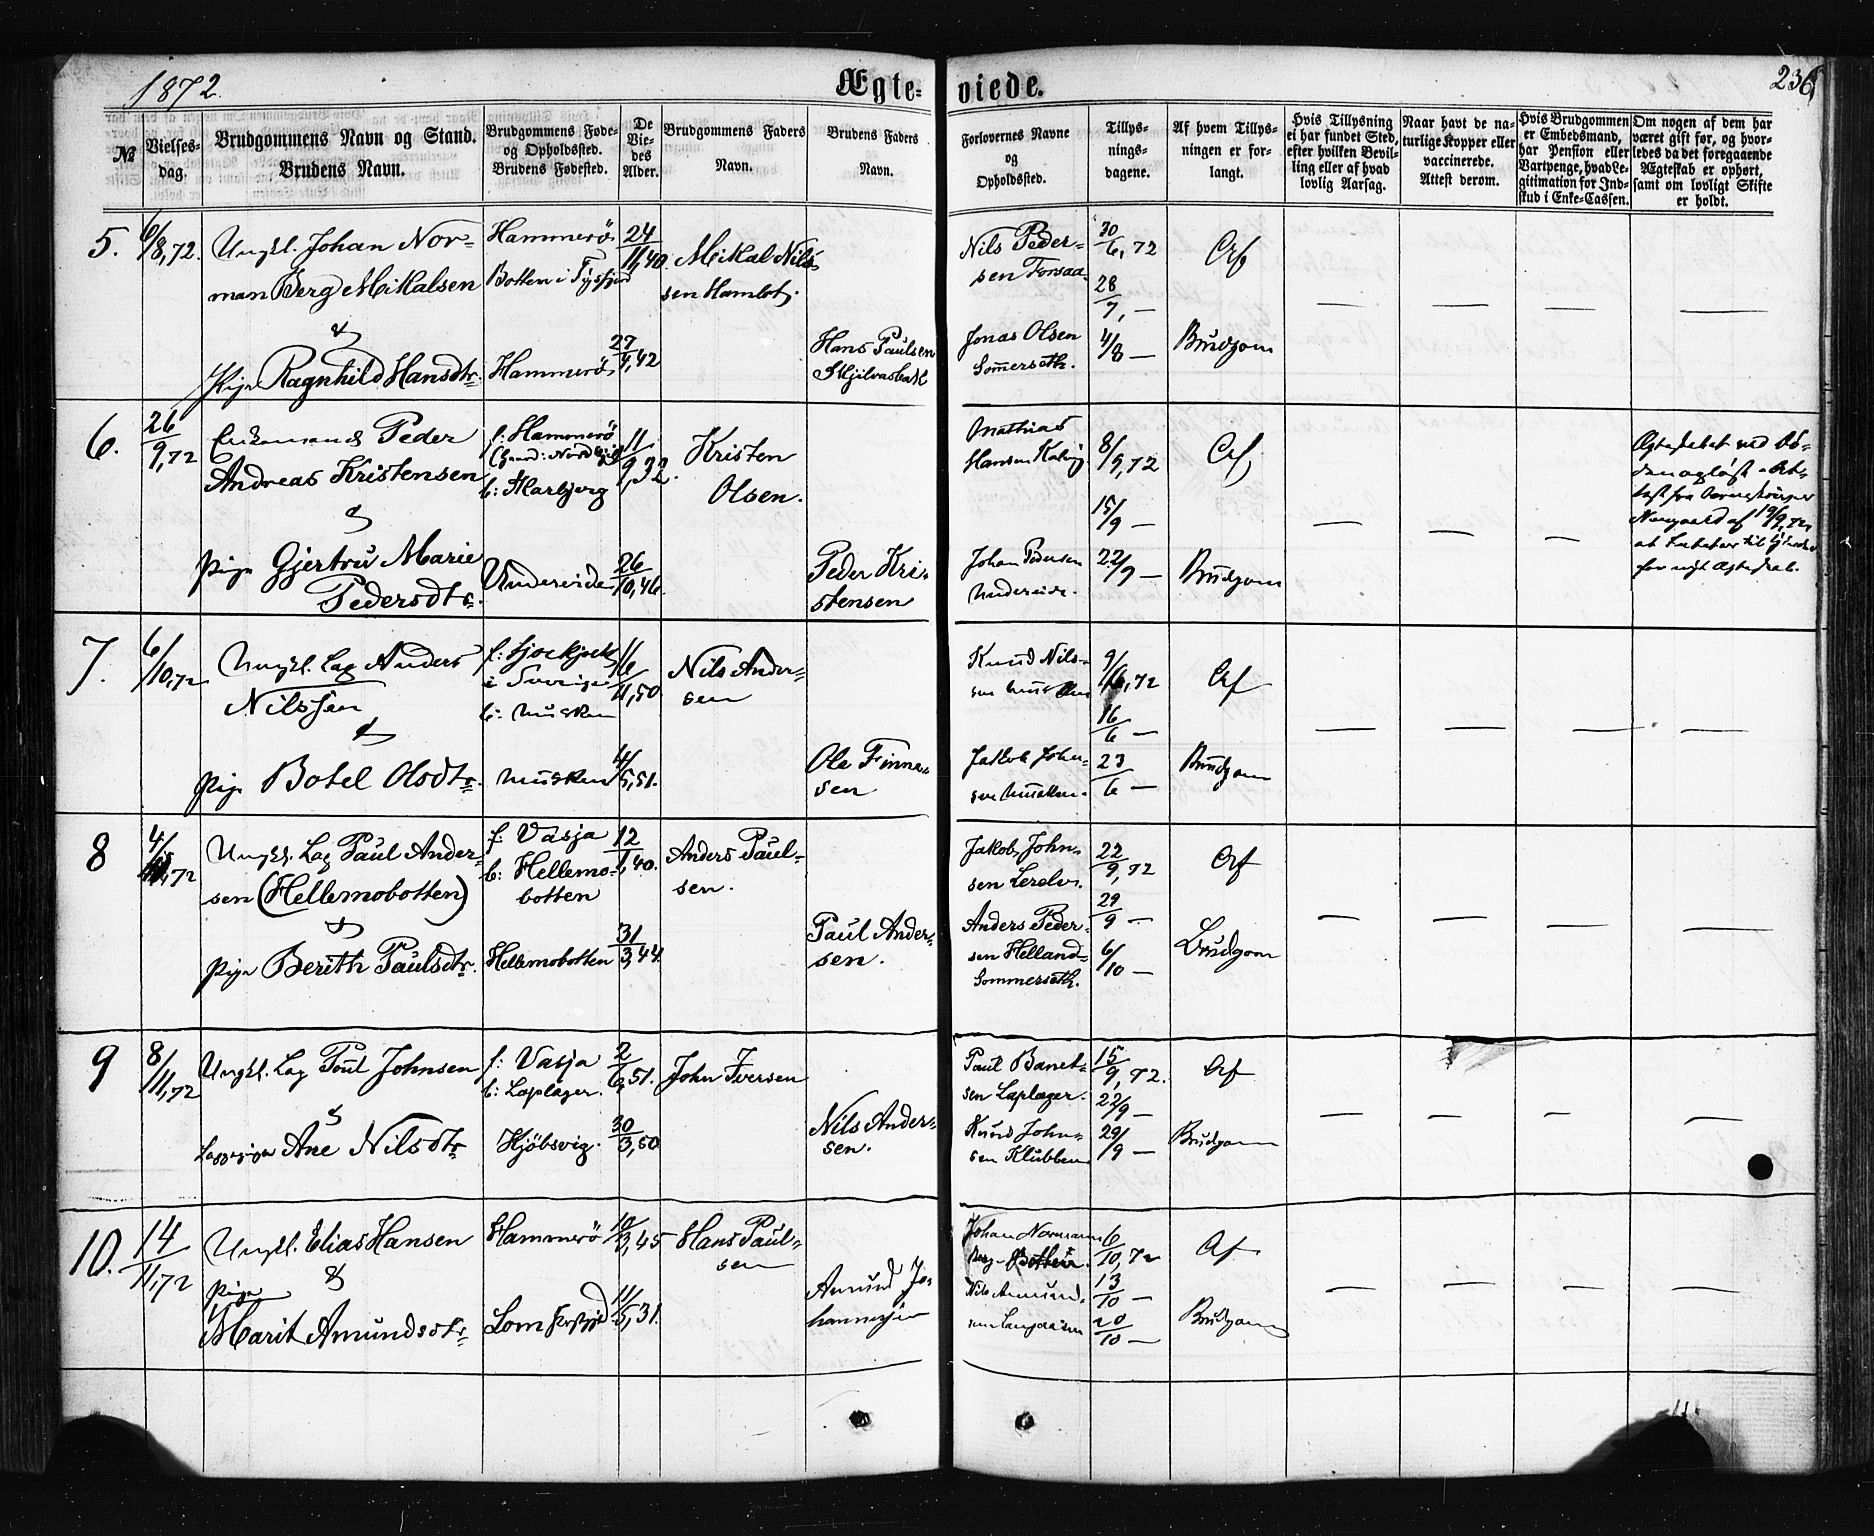 1872.
Ægteviede.
236
№
Vielsesdag.
Brudgommens Navn og Stand.
Brudens Navn.
Brudgommens Føde-
og Opholdssted.
Brudens Fødested.
De
Vie-
des
Alder.
Brudgommens Faders
Navn.
Brudens Faders
Navn.
Forlovernes Navne
og
Opholdssted.
Tillys-
nings-
dagene.
Af hvem Tillys-
ningen er for-
langt.
Hvis Tillysning
ei har fundet Sted,
efter hvilken Bevil-
ling eller af hvad
lovlig Aarsag.
Naar havt de na-
turlige Kopper eller
vaccinerede.
Attest derom.
Hvis Brudgommen
er Embedsmand,
har Pension eller
Vartpenge, hvad Le-
gitimation for Ind-
skud i Enke-Cassen.
Om nogen af dem har
været gift før, og hvor-
ledes da det foregaaende
Ægteskab er ophørt,
samt om lovligt Skifte
er holdt.
5.
6/8,72.
Ungkl. Johan Nor-
man Berg Mikkalsen
&
Pige Ragnhild Hansdtr.
Hammerö
Botten i Tysfjord
Hammerö
24/11,40.
27/4,42
Mikal Nils-
sen Hambotj.
Hans Paulsen
Nils Peder-
sen Forsaa
Jonas Olsen
Sommerseth.
30/6,72
28/7,—
4/8 —
Brudgom
6.
26/9,72
Enkemand Peder
Andreas Kristensen
&
Pige Gjertru Marie
Pedersdtr.
f: Hammerö
b: Korbjerg
Undereide
11/9,32.
26/10,46.
Kristen
Olsen.
Peder Kri-
stensen
Mathias
Hansen
Johan Pedersen
Undereide.
8/9,72
15/9 —
22/9 —
Brudgom
Ægteskabet ved Dö-
den oplöst
for nyt Ægteskab.
7.
6/10,72
Ungkl. Lap Anders
Nilssen
&
Pige Botel Olsdtr.
i Sverige
b: Musken
Musken
11,50
4/5,51.
Nils Ander-
sen
Ole Finne-
sen
Knud Nils-
sen Musken
Jakob John-
sen Musken.
9/6,72
16/6 —
23/6 —
Brudgom
8
4/11,72
Ungkl. Lap Paul Ander-
sen (Hellemobotten)
&
Pige Berith Paulsdtr.
f: Vasja
b: Hellemo-
botten
Hellemobotten
12/1,40.
31/3,44.
Anders Paul-
sen.
Paul Ander-
sen.
Jakob John-
sen
Anders Peder-
sen Helland-
Sommerseth.
22/9,72
29/9 —
6/10 —
Brudgom
9
8/11,72
Ungkl. Lap Poul Johnsen
&
Lappepige Ane Nilsdtr
f: Vasja
b: Laplager.
Kjöbsvig.
2/6,51.
30/3,50
John Iversen
Nils Ander-
sen.
Paul Banet-
sen Laplæger.
Knud John-
sen Klubben
15/9,72.
22/9 —
29/9 —
Brudgom
10.
14/11,72
Ungkl. Elias Hansen
Pige &
Marit Amundsdtr.
Hammerö
Lom
10/3,45
11/5,31.
Hans Paul-
sen
Amund Jo-
hannesen
Johan Normann
Berg Botten.
Nils Amund-
6/10,72
13/10 —
20/10 —
Brudgom